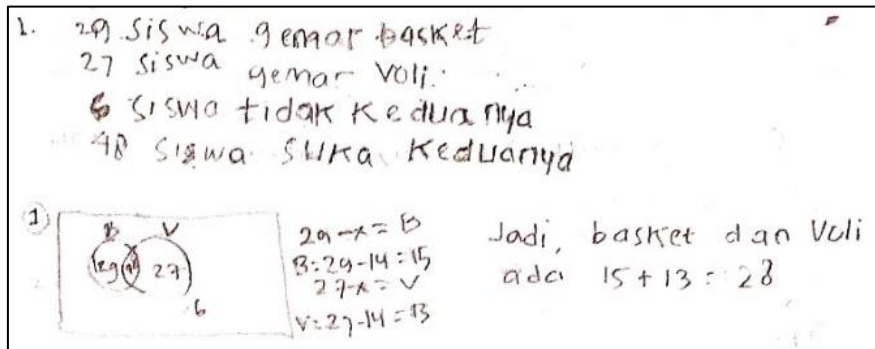 1. 29 siswa gemar basket
27 siswa gemar Voli.
6 siswa tidak keduanya
48 siswa suka keduanya
1
B V
29 27
6
29-x = B
B = 29-14 = 15
27-x = V
V = 27-14 = 13
Jadi, basket dan Voli
ada 15 + 13 = 28